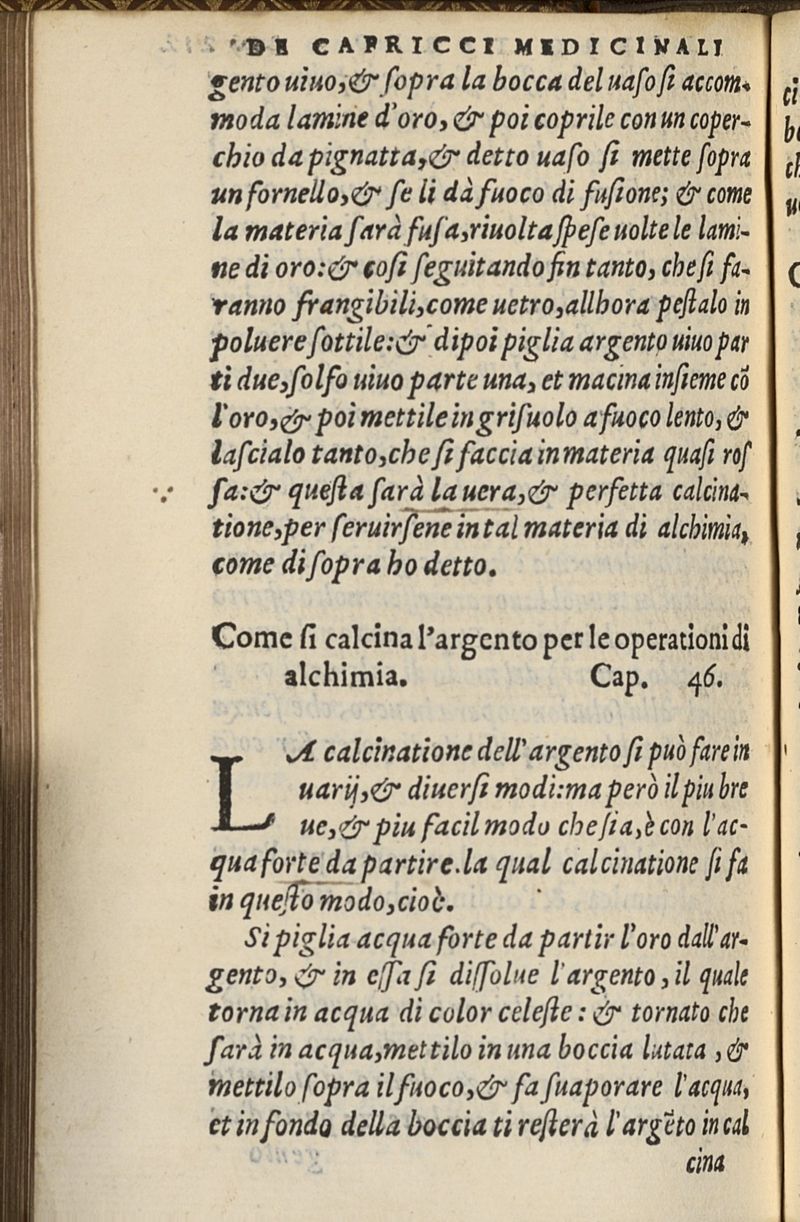 DE CAPRICCI MEDICINALI
gento uiuo, & ſopra la bocca del uaſo ſi accom-
moda lamine d'oro, & poi coprile con un coper-
chio da pignatta, & detto uaſo ſi mette ſopra
un fornello, & ſe li dà fuoco di fuſione; & come
la materia ſarà fuſa, riuolta ſpeſe uolte le lami-
ne di oro: & coſi ſeguitando fin tanto, che ſi fa-
ranno frangibili, come uetro, allhora peſtalo in
poluere ſottile: & dipoi piglia argento uiuo par
ti due, ſolfo uiuo parte una, et macina inſieme cõ
l'oro, & poi mettile in griſuolo a fuoco lento, &
laſcialo tanto, che ſi faccia in materia quaſi roſ
ſa: & queſta ſarà la uera, & perfetta calcina-
tione, per ſeruirſene in tal materia di alchimia,
come di ſopra ho detto.
Come ſi calcina l'argento per le operationi di
alchimia. Cap. 46.
LA calcinatione dell'argento ſi può fare in
uarij, & diuerſi modi: ma però il piu bre
ue, & piu facil modo che ſia, è con l'ac-
qua forte da partire. la qual calcinatione ſi fa
in queſto modo, cioè.
Si piglia acqua forte da partir l'oro dall'ar-
gento, & in eſſa ſi diſſolue l'argento, il quale
torna in acqua di color celeſte: & tornato che
ſarà in acqua, mettilo in una boccia lutata, &
mettilo ſopra il fuoco, & fa ſuaporare l'acqua,
et in fondo della boccia ti reſterà l'argẽto in cal
cina